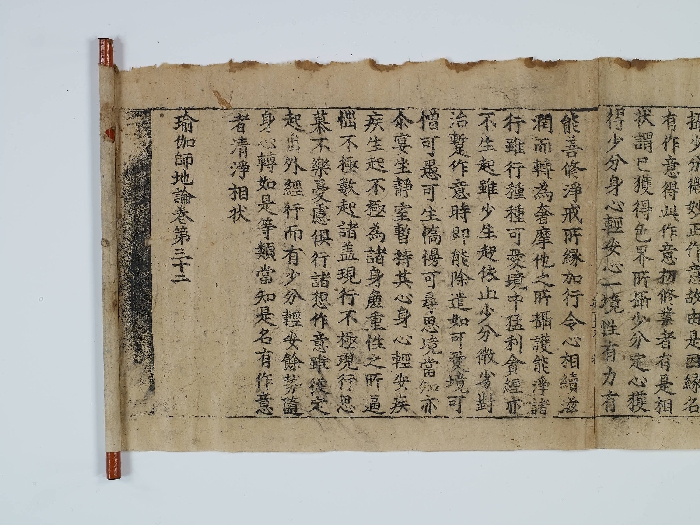 有作意得此作意初修業者有是相
狀謂已獲得色界所攝少分定心獲
得少分身心輕安心一境性有力有
能善修淨戒所緣加行令心相續滋
潤而轉為奢摩他之所攝護能淨諸
行雖行種種可愛境中猛利貪纏亦
不生起雖少生起依止少分微劣對
治蹔作意時即能除遣如可愛境可
憎可愚可生憍慢可尋思境當知亦
尒宴坐靜室暫持其心身心輕安疾
疾生起不極為諸身麁重性之所逼
惱不極數起諸盖現行不極現行思
慕不樂憂慮俱行諸想作意雖從定
起出外經行而有少分輕安餘勢隨
身心轉如是等類當知是名有作意
者清淨相狀
瑜伽師地論卷第三十二